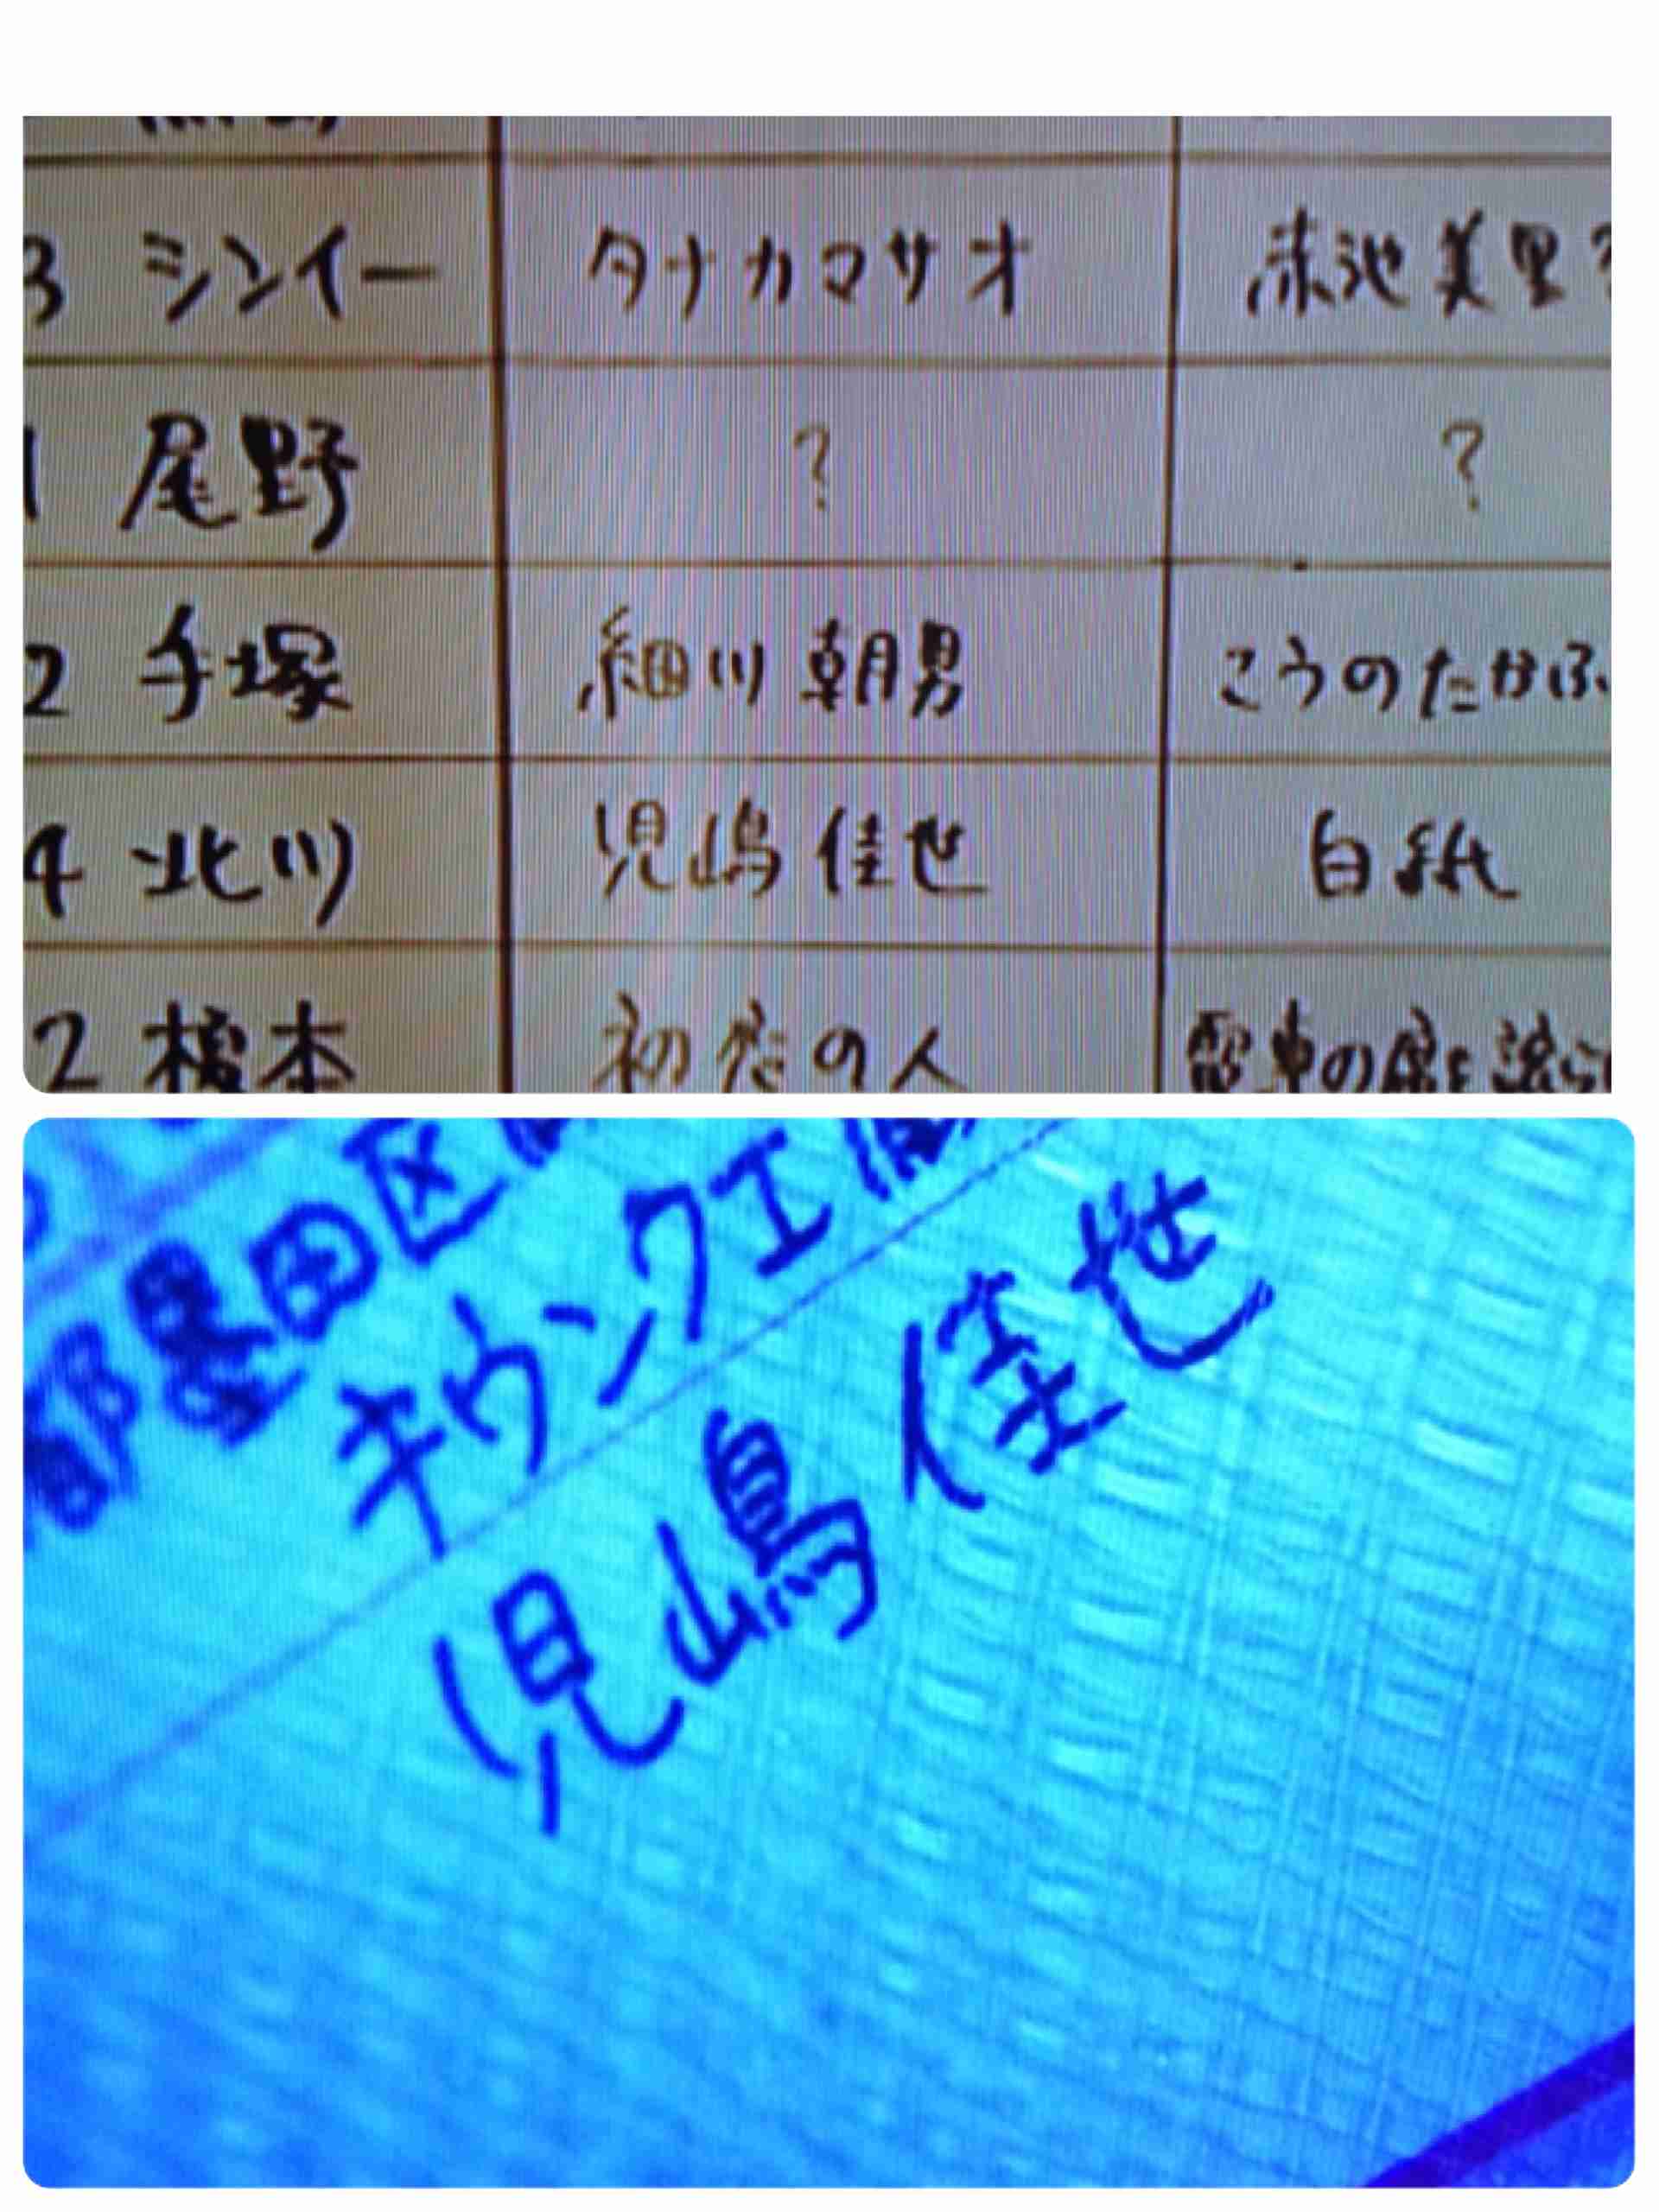 3 シンイー タナカマサオ 赤池美里?
1 尾野 ? ?
2 手塚 細川朝男 こうのたかふ
4 北川 児嶋佳世 白紙
2 榎本 初恋の人 電車の席を譲ら
都墨田区
キウンクエ
児嶋佳世